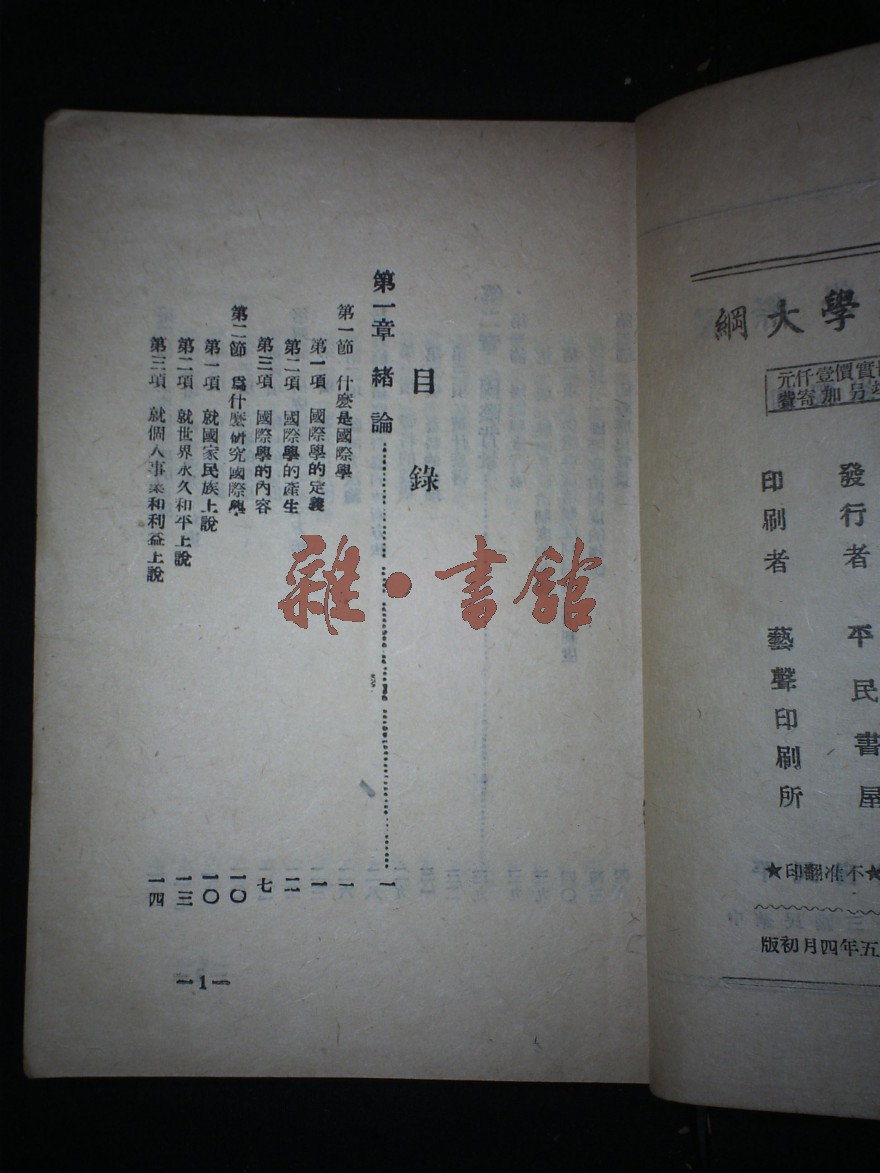 學大綱
實價壹仟元
另加寄費
發行者 平民書屋
印刷者 藝聲印刷所
★不准翻印★
五年四月初版
目錄
第一章 緒論……一
第一節 什麼是國際學 一
第一項 國際學的定義 一
第二項 國際學的產生 二
第三項 國際學的內容 七
第二節 爲什麼研究國際學 一〇
第一項 就國家民族上說 一〇
第二項 就世界永久和平上說 一三
第三項 就個人事業和利益上說 一四
—1—
雜·書館